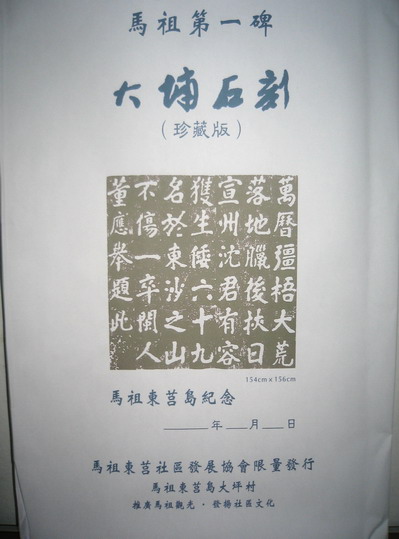 馬祖第一碑
大埔石刻
(珍藏版)
萬曆彊梧大荒
落地臘後挾日
宣州沈君有容
獲生倭六十九
名於東沙之山
不傷一卒閩人
董應舉題此
154cm×156cm
馬祖東莒島紀念
____年___月___日
馬祖東莒社區發展協會限量發行
馬祖東莒島大坪村
推廣馬祖觀光・發揚社區文化